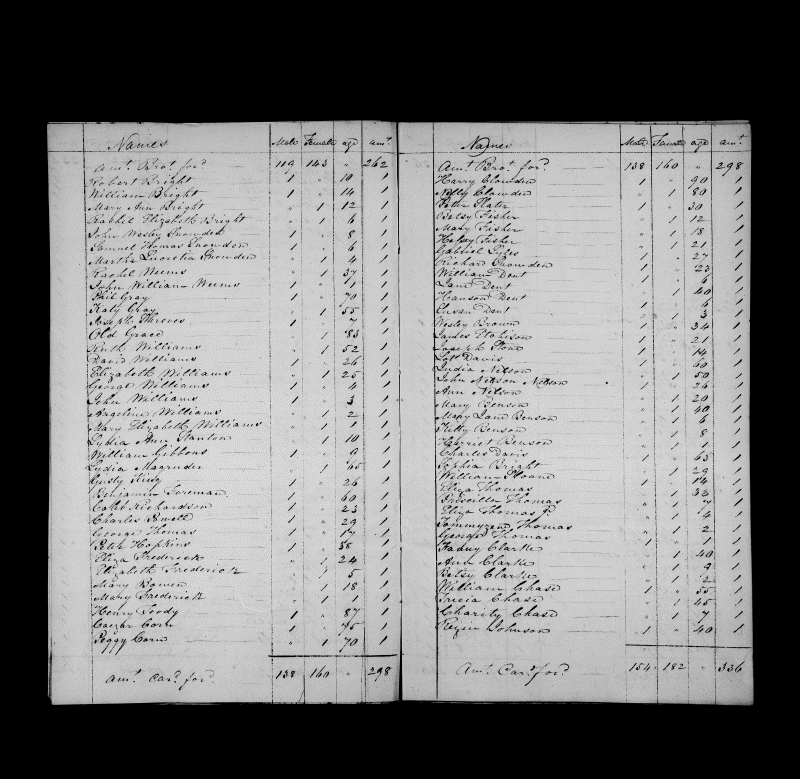 Names Male Female age amt
Amt. Brot. for'd 119 143 " 262
Robert Bright 1 " 10 1
William Bright 1 " 14 1
Mary Ann Bright " 1 12 1
Rachel Elizabeth Bright " 1 6 1
John Wesley Snowden 1 " 8 1
Samuel Thomas Snowden 1 " 6 1
Martha Lucretia Snowden " 1 4 1
Rachel Weems " 1 37 1
John William Weems 1 " 1 1
Phil Gray 1 " 70 1
Katy Gray " 1 55 1
Joseph 1 " 7 1
Old Grace 83 1
Ruth Williams " 1 52 1
David Williams 1 " 26 1
Elizabeth Williams " 1 25 1
George Williams 1 " 4 1
John Williams 1 " 3 1
Angelina Williams " 1 2 1
Mary Elizabeth Williams " 1 1 1
Lydia Ann Stanton " 1 10 1
William Gibbons 1 " 9 1
Lydia Magruder " 1 65 1
King 26 1
Benjamin Foreman 60 1
Caleb Richardson 1 " 23 1
Charles 1 " 29 1
George Thomas 1 " 17 1
Peter Hopkins 1 " 38 1
Eliza Frederick " 1 24 1
Elizabeth Frederick " 1 5 1
Mary Bowen " 1 18 1
Mary Frederick " 1 1 1
Henry Toody 1 " 87 1
Caezar Corn 1 " 45 1
Peggy Corn " 1 70 1
Amt. Card. for'd. 138 160 " 298
Names Male Female age amt
Amt. Brot. for'd. 138 160 " 298
Harry Clowden 1 " 90 1
Nelly Clowden " 1 80 1
Peter Slater 1 " 30 1
Betsy Fisher " 1 12 1
Mary Fisher " 1 18 1
Fisher " 1 21 1
Gabriel 1 " 27 1
Richard Snowden 1 " 23 1
William Dent 1 " 6 1
Jane Dent " 1 40 1
Hanson Dent 1 " 6 1
Susan Dent " 1 3 1
Wesley Brown 1 " 34 1
James 1 " 21 1
Joseph 1 " 14 1
Davis 1 " 60 1
Lydia Nelson " 1 50 1
John Nelson Nelson 1 " 26 1
Ann Nelson " 1 20 1
Mary Benson " 1 40 1
Mary Jane Benson " 1 6 1
Kitty Benson " 1 8 1
Harriet Benson " 1 1 1
Charles Davis 1 " 65 1
Sophia Bright " 1 29 1
William Sloane 1 " 14 1
Eliza Thomas " 1 32 1
Priscilla Thomas " 1 7 1
Eliza Thomas " 1 4 1
Thomas " 1 2 1
George Thomas 1 " 1 1
Fanny Clarke " 1 40 1
Ann Clarke " 1 9 1
Betsy Clarke " 1 2 1
William Chase 1 " 55 1
Chase " 1 45 1
Charity Chase " 1 7 1
Rezin Johnson 1 " 40 1
Amt. Card. for'd. 154 182 " 336